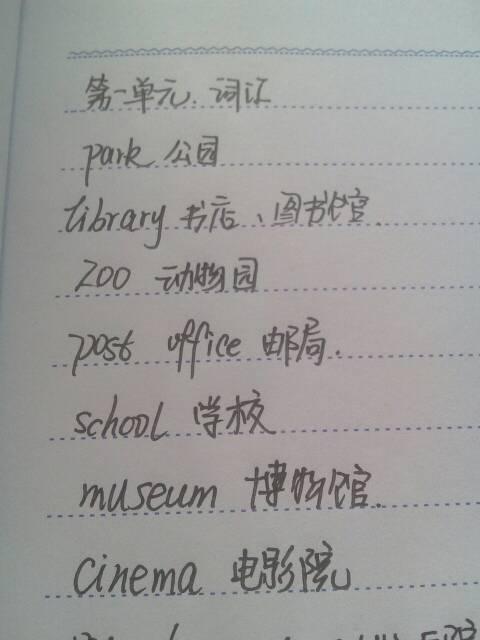 第一单元.词汇
park 公园
library 书店、图书馆.
zoo 动物园
post office 邮局.
school 学校
museum 博物馆.
cinema 电影院